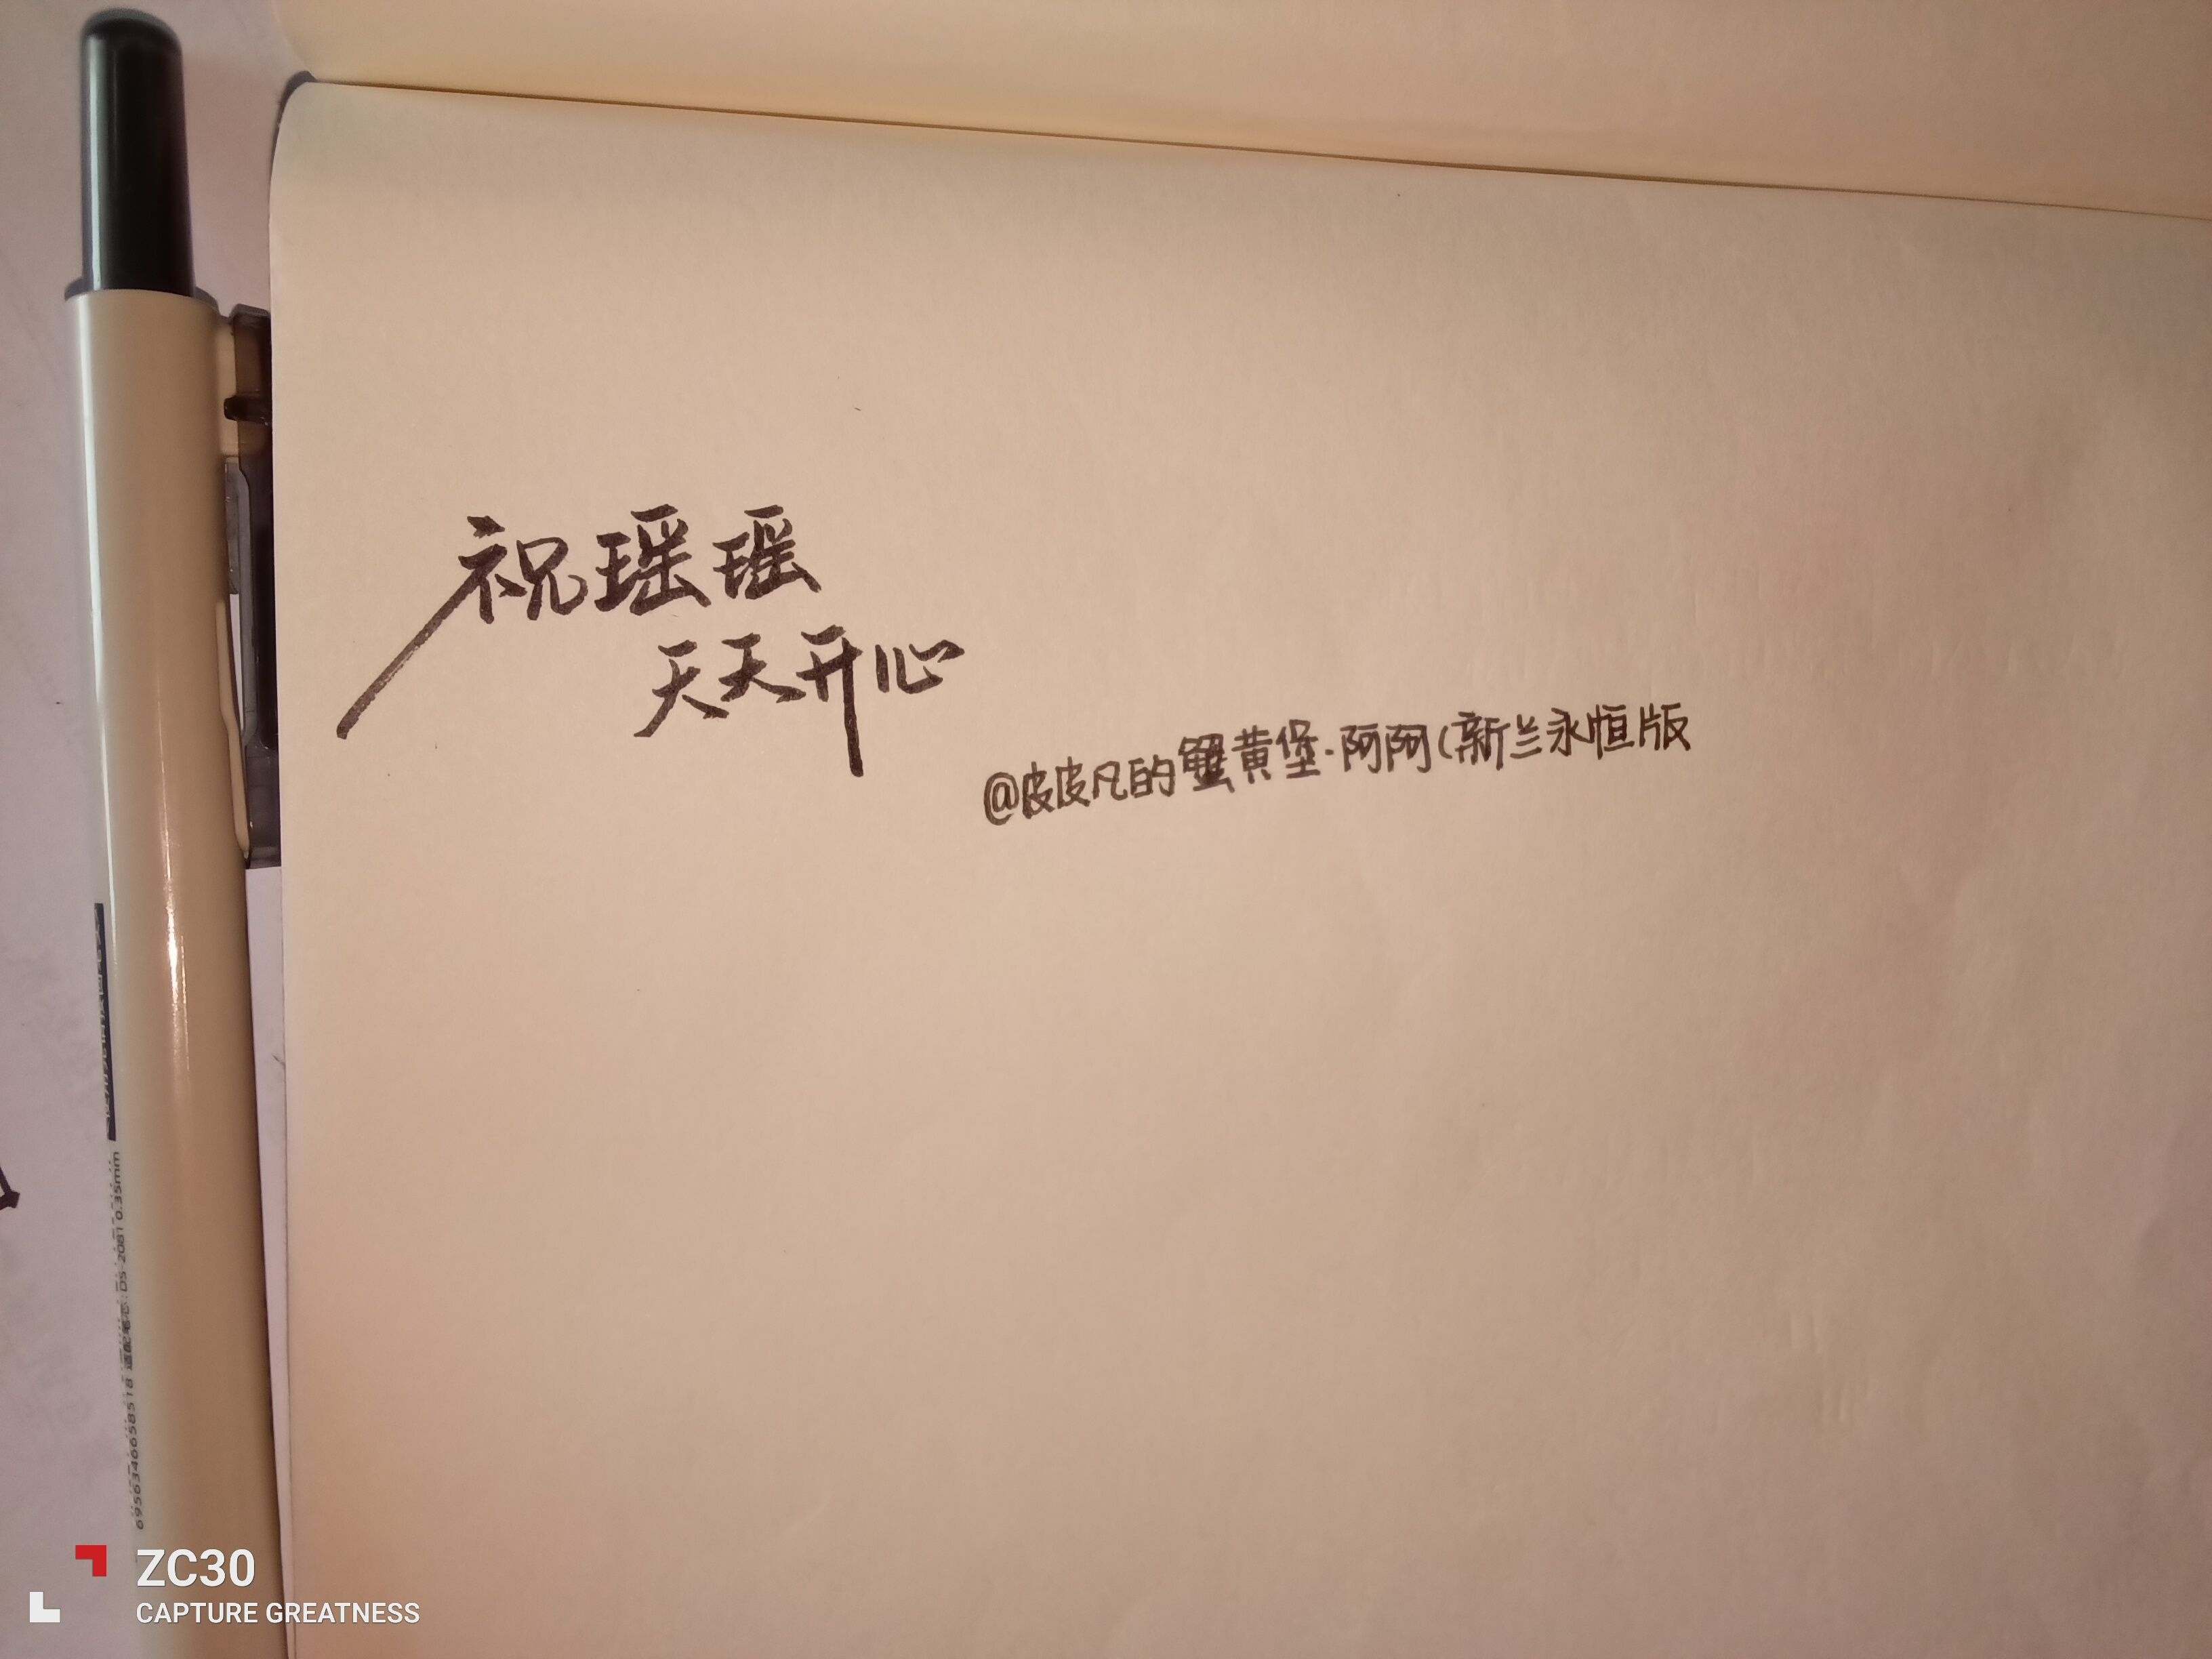 祝瑶瑶
天天开心
@皮皮凡的蟹黄堡·阿阿(新兰永恒版
6956346658518 适配笔芯:DS-2081 0.35mm
ZC30
CAPTURE GREATNESS